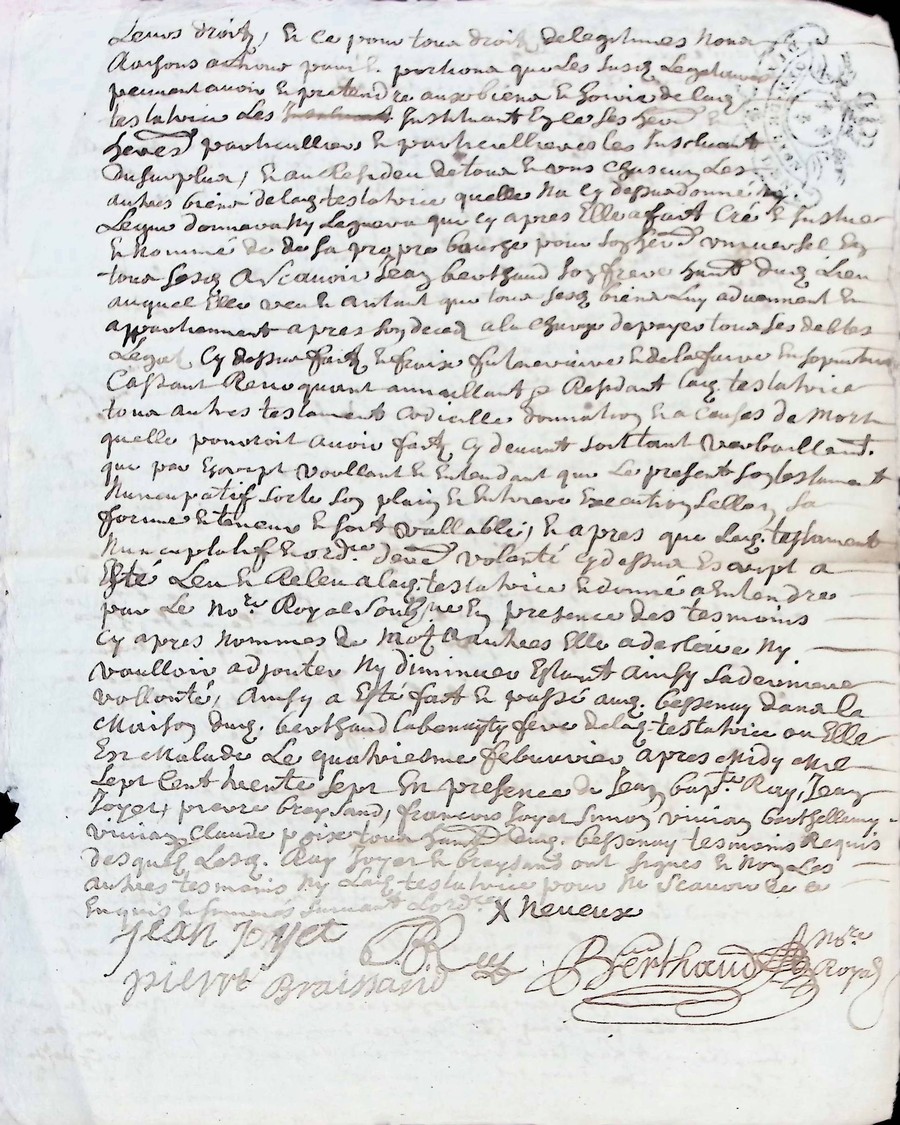 Leurs droitz, Et ce pour tous droitz de legitimes Noms
Raisons actions pars Et portions que Les susd. Legataires
peuvent avoir Et pretendre aux biens Et hoirie de lad.
testatrice Les Instituant Et Ses her. Et
herers particulliers Et particullieres les Instituant
Du surplus, Et au Residu de tous Et uns chascuns Les
autres biens de lad. testatrice quelle Na Cy dessus donné Ny
Legue donnera Ny Leguera que cy apres Elle a fait Créé Et Institué
Et Nommé de de sa propre bouche pour son her. universel En
tous Sesd. A Scavoir Jean berthaud Son frere hant. dud. Lieu
auquel Elle veu Et Entant que tous Sesd. biens Luy adviennent Et
appartiennent apres Son deced a la Charge de payer tous Ses debtes
Legat Cy dessus faitz Et frais funeraires Et de la faire Ensepulturer
Cassant Revoquant annullant Et lad. testatrice
tous autres testament Codicille donnation Et a Causes de Mort
quelle pourroit avoir fait Cy devant soit tant verballant.
que par Escript voullant Et Entendant que Le present Son testament
Nuncupatif Sorte Son plain Et Entiere Execution Sellon Sa
forme Et teneur Et soit vallable, Et apres que Lad. testament
Nuncupatif Et ord.re de volonté Cy dessus Escript a
Esté Leu Et Releu a lad. testatrice Et donné a Entendre
par Le No.re Royal Soub.ne En presence des tesmoins
Cy apres Nommes de Mot A autres Elle a desclaré Ny
voulloir adjouter Ny diminuer Estant Ainsy Sa derniere
vollonté, Ainsy a Esté fait Et passé aud. bessenay dans la
Maison dud. berthaud frere de lad. testatrice ou Elle
Est Malade Le quatriesme febvrier apres Midy Mil
Sept Cent trente Sept En presence de Jean bapt.e Ray, Jean
Joyet, pierre braysand, françois Joyet Simon vivian barthellemy
vivian Claude poix tous hant. dud. bessenay tesmoins Requis
desquelz Lesd. Ray Joyet Et braysand ont signes Et Non Les
autres tesmoins Ny Lad. testatrice pour Ne Scavoir de ce
Enquis Et sommés Suivant Lord.ce X neveux
Jean Joyet
pierre Braissand Berthaud No.re Royal